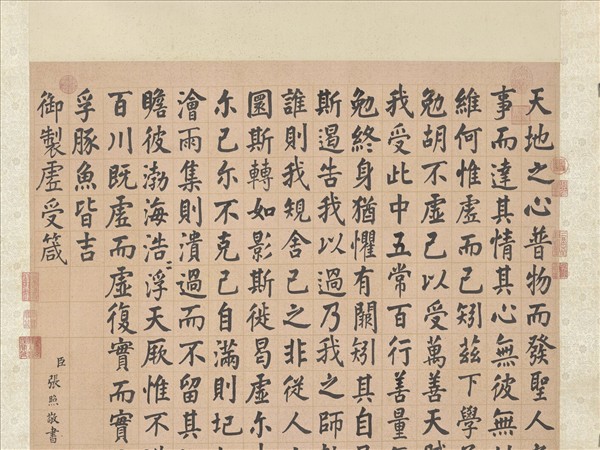 天地之心普物而發聖人
事而達其情其心無彼無
維何惟虛而已矧茲下學
勉胡不虛己以受萬善天賦
我受此中五常百行善量
勉終身猶懼有闕矧其自
斯遏告我以過乃我之師
誰則我規舍己之非從人
圜斯轉如影斯徙曷虛尔
尔己尔不克己自滿則圮
澮雨集則潰過而不留其
瞻彼渤海浩〻浮天厥惟不
百川既虛而虛復實而實
孚豚魚皆吉
御製虛受箴
臣張照敬書